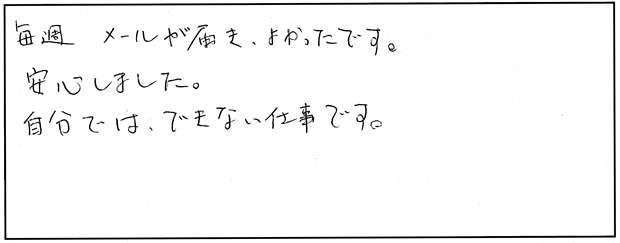 毎週 メールが届き、よかったです。
安心しました。
自分では、できない仕事です。